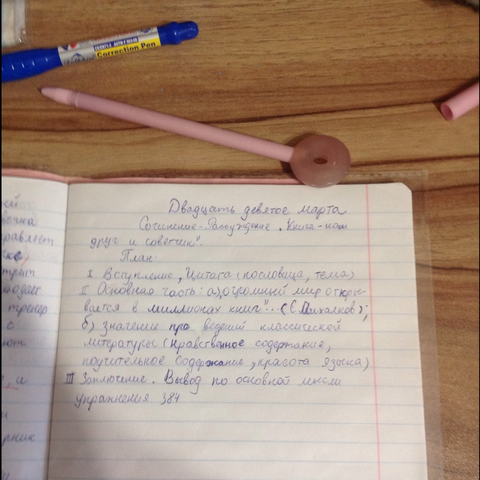 Correction Pen
Двадцать девятое марта
Сочинение-Рассуждение "Книга-наш
друг и советчик".
План:
I Вступление, Цитата (пословица, тема)
II Основная часть: а) "огромный мир откры-
вается в миллионах книг"... (С. Михалков);
б) значение про ведений классической
литературы (нравственное содержание,
поучительное содержание, красота языка)
III Заключение. Вывод по основной мысли
упражнения 384